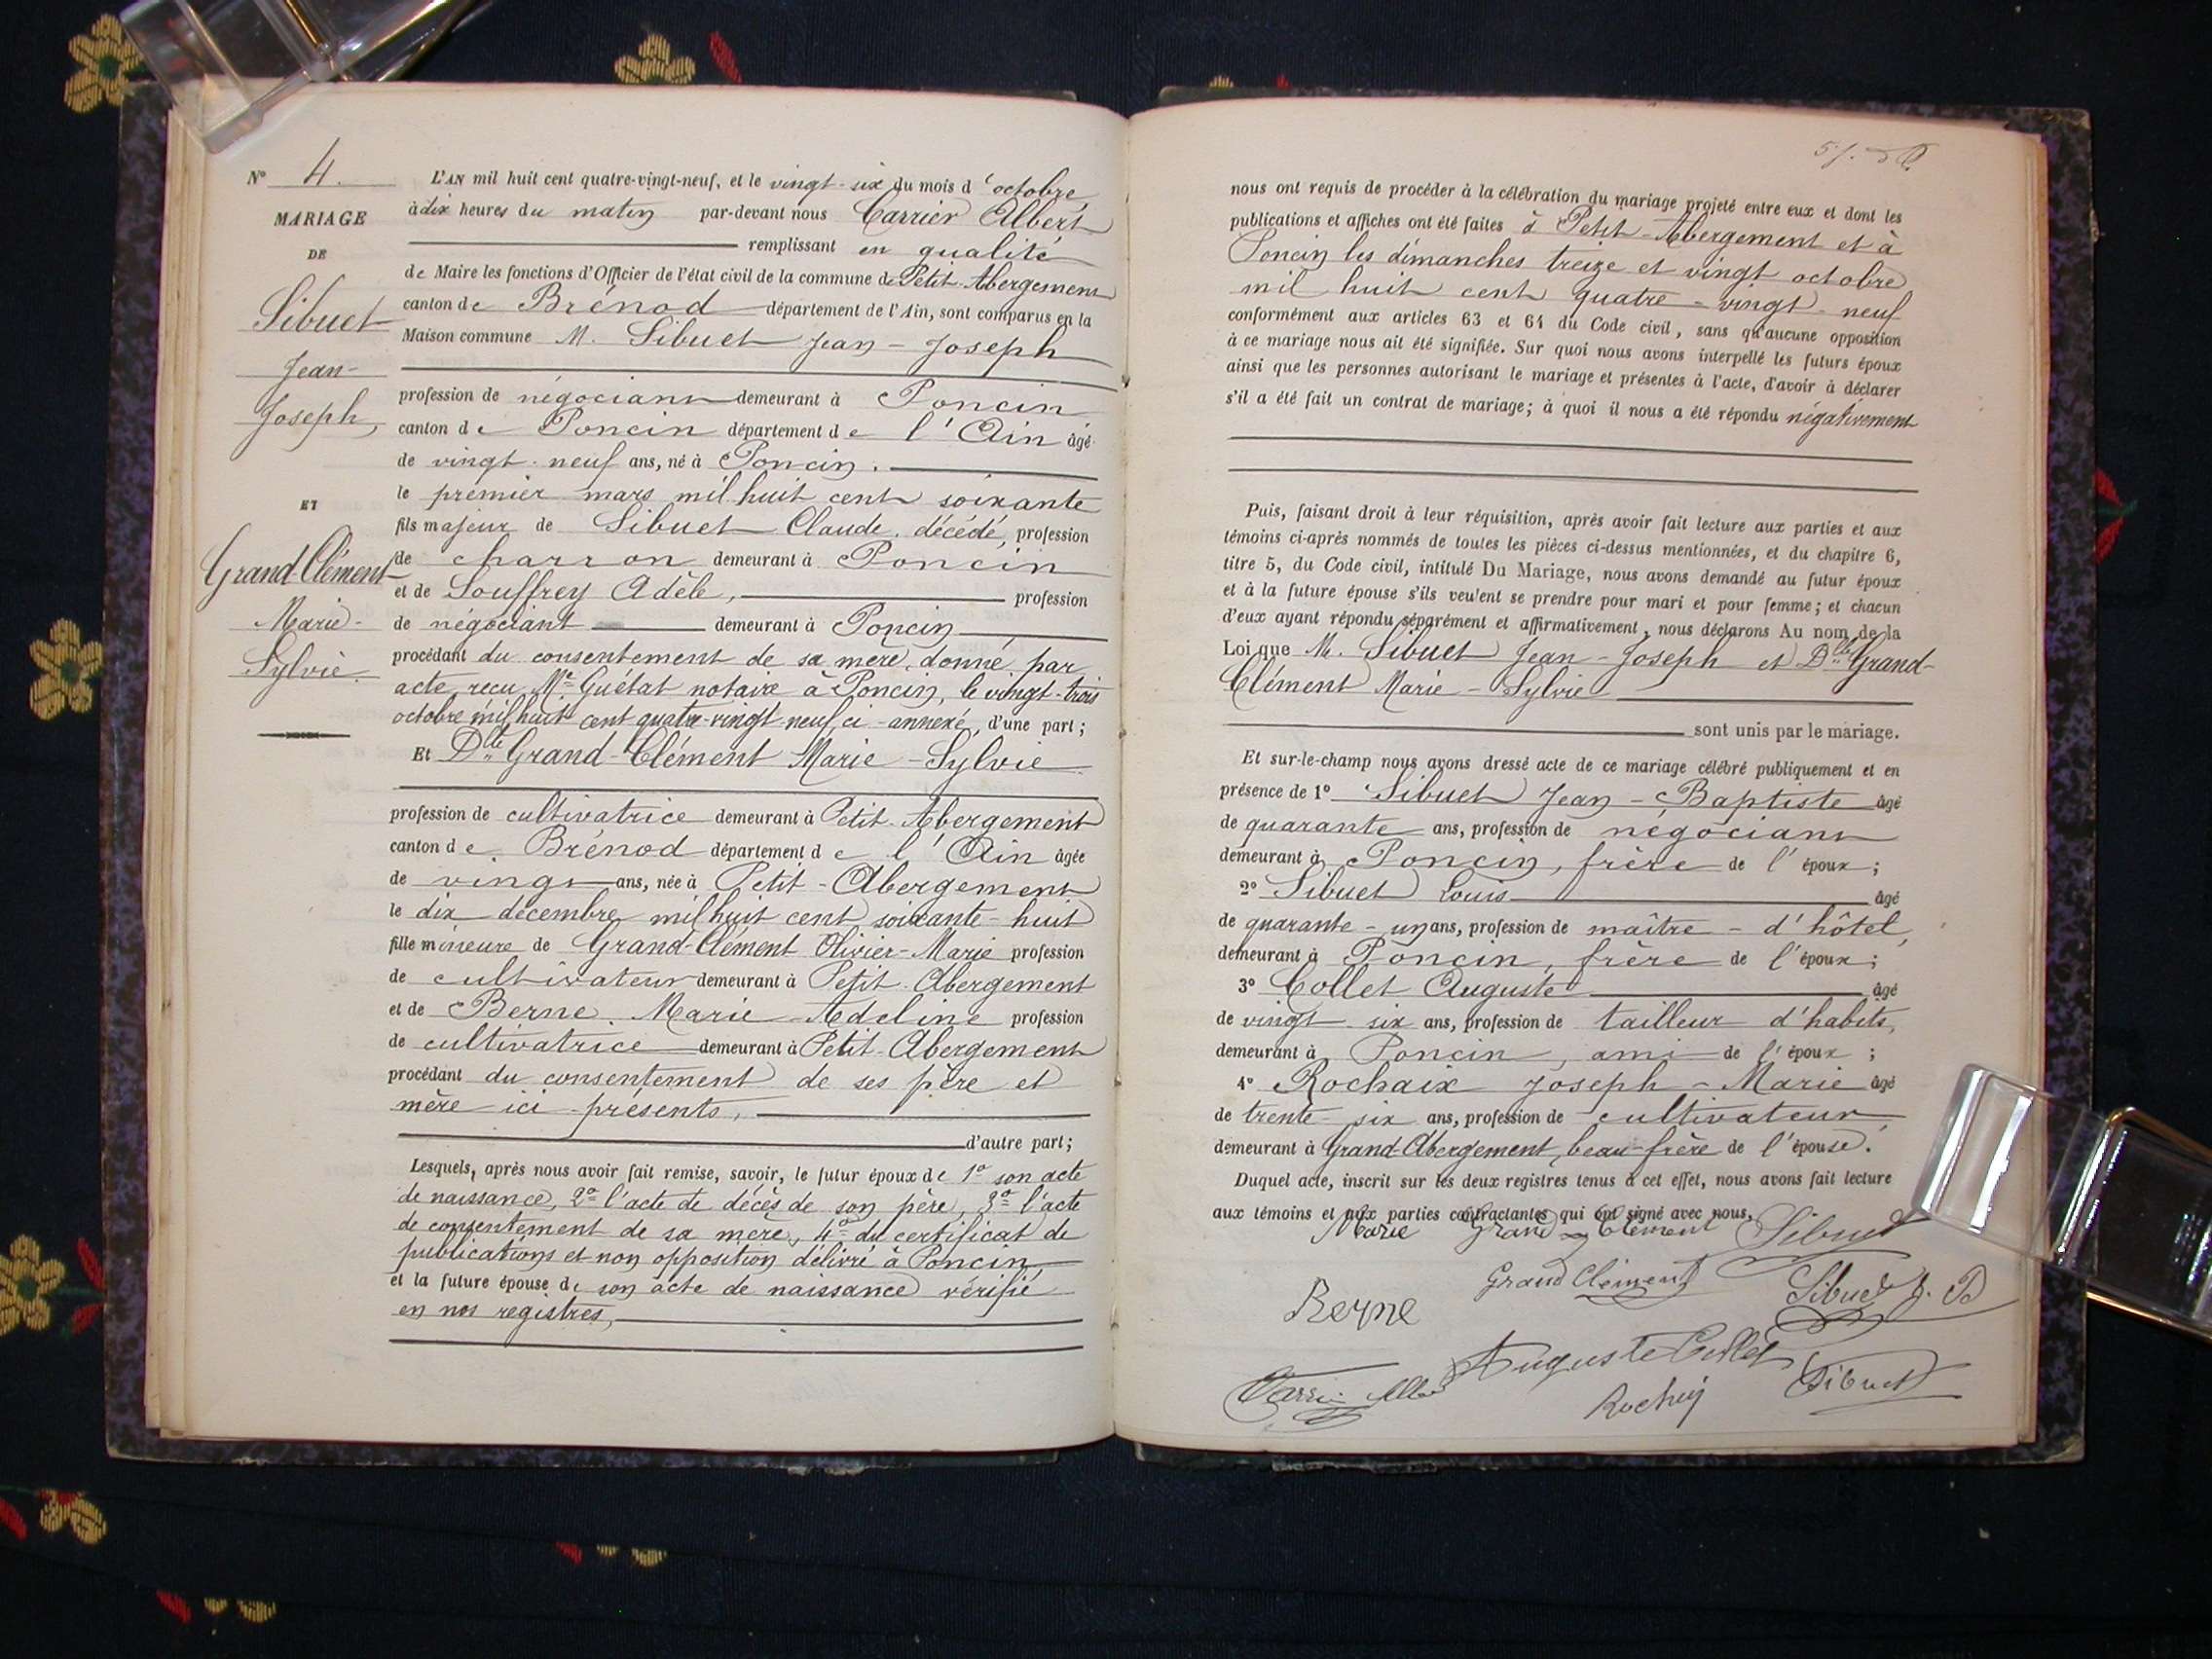 N° 4.
MARIAGE
DE
Sibuet
Jean-
Joseph,
ET
Grand-Clément
Marie-
Sylvie.
L'AN mil huit cent quatre-vingt-neuf, et le vingt-six du mois d'octobre,
à dix heures du matin par-devant nous Carrier Albert
remplissant en qualité
de Maire les fonctions d'Officier de l'état civil de la commune de Petit-Abergement
canton de Brénod département de l'Ain, sont comparus en la
Maison commune M. Sibuet Jean-Joseph
profession de négociant demeurant à Poncin
canton de Poncin département de l'Ain âgé
de vingt-neuf ans, né à Poncin.
le premier mars mil huit cent soixante
fils majeur de Sibuet Claude, décédé, profession
de charron demeurant à Poncin
et de Souffrey Adèle, profession
de négociant demeurant à Poncin
procédant du consentement de sa mère, donné par
acte reçu Me Guétat notaire à Poncin, le vingt-trois
octobre mil huit cent quatre-vingt neuf, ci-annexé, d'une part;
Et Dlle Grand-Clément Marie-Sylvie
profession de cultivatrice demeurant à Petit-Abergement
canton de Brénod département de l'Ain âgée
de vingt ans, née à Petit-Abergement
le dix décembre mil huit cent soixante-huit
fille mineure de Grand-Clément Olivier-Marie profession
de cultivateur demeurant à Petit-Abergement
et de Berne Marie-Adeline profession
de cultivatrice demeurant à Petit-Abergement
procédant du consentement de ses père et
mère ici-présents,
d'autre part;
Lesquels, après nous avoir fait remise, savoir, le futur époux de 1° son acte
de naissance, 2° l'acte de décès de son père, 3° l'acte
de consentement de sa mère, 4° du certificat de
publications et non opposition délivré à Poncin
et la future épouse de son acte de naissance vérifié
en nos registres,
nous ont requis de procéder à la célébration du mariage projeté entre eux et dont les
publications et affiches ont été faites à Petit-Abergement et à
Poncin les dimanches treize et vingt octobre
mil huit cent quatre-vingt-neuf
conformément aux articles 63 et 64 du Code civil, sans qu'aucune opposition
à ce mariage nous ait été signifiée. Sur quoi nous avons interpellé les futurs époux
ainsi que les personnes autorisant le mariage et présentes à l'acte, d'avoir à déclarer
s'il a été fait un contrat de mariage; à quoi il nous a été répondu négativement
Puis, faisant droit à leur réquisition, après avoir fait lecture aux parties et aux
témoins ci-après nommés de toutes les pièces ci-dessus mentionnées, et du chapitre 6,
titre 5, du Code civil, intitulé Du Mariage, nous avons demandé au futur époux
et à la future épouse s'ils veulent se prendre pour mari et pour femme; et chacun
d'eux ayant répondu séparément et affirmativement, nous déclarons Au nom de la
Loi que M. Sibuet Jean-Joseph et Dlle Grand-
Clément Marie-Sylvie
sont unis par le mariage.
Et sur-le-champ nous avons dressé acte de ce mariage célébré publiquement et en
présence de 1° Sibuet Jean-Baptiste âgé
de quarante ans, profession de négociant
demeurant à Poncin, frère de l'époux;
2° Sibuet Louis âgé
de quarante-un ans, profession de maître-d'hôtel,
demeurant à Poncin, frère de l'époux;
3° Collet Auguste âgé
de vingt-six ans, profession de tailleur d'habits,
demeurant à Poncin, ami de l'époux;
4° Rochaix Joseph-Marie âgé
de trente-six ans, profession de cultivateur,
demeurant à Grand-Abergement, beau-frère de l'épouse.
Duquel acte, inscrit sur les deux registres tenus à cet effet, nous avons fait lecture
aux témoins et aux parties contractantes qui ont signé avec nous.
Marie Grand Clément Sibuet
Grand Clément Sibuet J. B
Berne
Auguste Collet Sibuet
Carrier